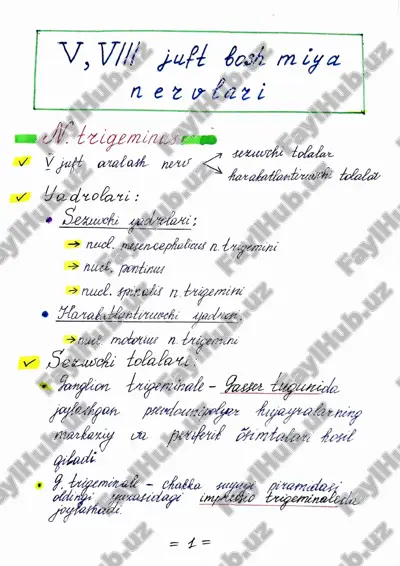 V, VIII juft bosh miya
nervlari
N. trigeminus
V juft aralash nerv
sezuvchi tolalar
harakatlantiruvchi tolalar
Yadrolari:
Sezuvchi yadrolari:
→ nucl. mesencephalicus n. trigemini
→ nucl. pontinus
→ nucl. spinalis n. trigemini
Harakatlantiruvchi yadrosi:
→ nucl. motorius n. trigemini
Sezuvchi tolalari:
Ganglion trigeminale - Gasser tugunida
joylashgan pseudounipolyar hujayralarning
markaziy va periferik o'simtalari hosil
qiladi
G. trigeminale - chakka suyagi piramidasi
oldingi yuzasidagi impressio trigeminaleda
joylashadi.
= 1 =
FaylHub.uz